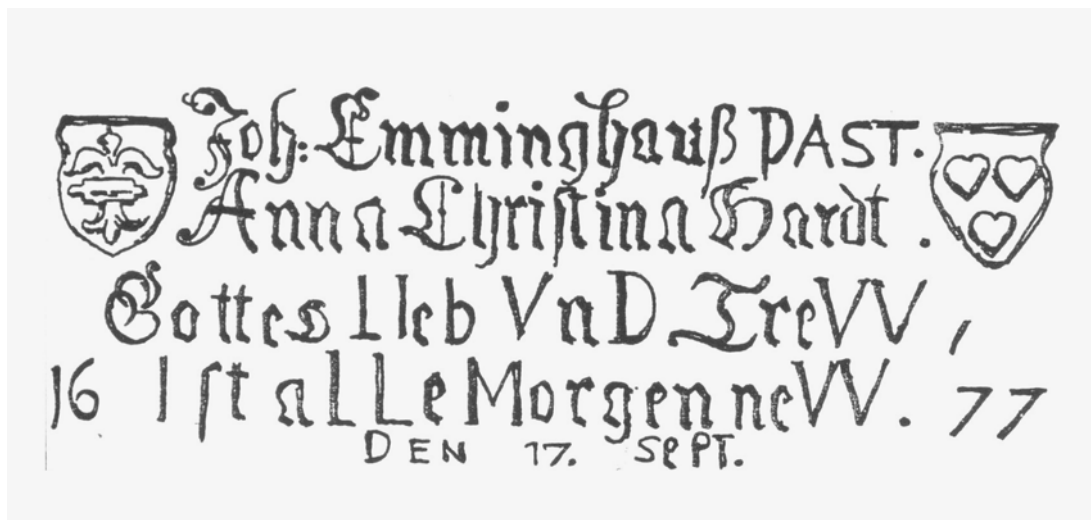 Joh: Emminghauß PAST.
Anna Christina Hardt.
Gottes LIeb VnD TreVV,
16 Ist aLLe Morgen neVV. 77
DEN 17. SePT.